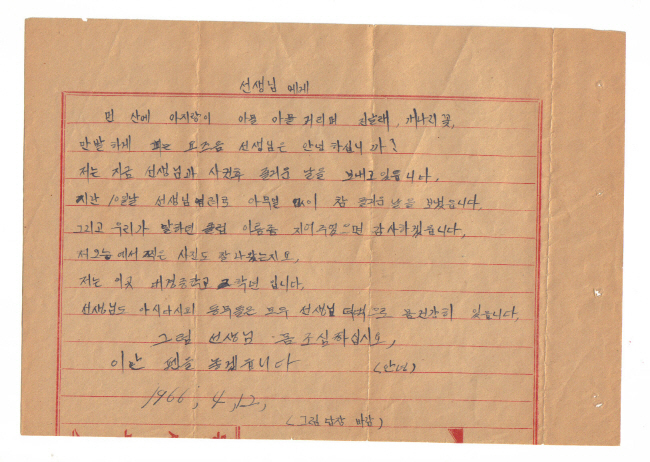 선생님 에게
먼 산에 아지랑이 아른 아른 거리며 진달래, 개나리 꽃,
만발 하게 요즈음 선생님은 안녕 하십니까?
저는 지금 선생님과 사귄후 즐거운 날을 보내고 있읍니다.
지난 10일날 아무일 없이 참 즐거운 날을 보냈습니다.
그리고 우리가 말하던 클럽 이름을 지어주셨으면 감사하겠읍니다.
저 에서 찍은 사진도 잘 나왔는지요.
저는 이곳 학년 입니다.
선생님도 아시다시피 모두 선생님 덕택으로 몸건강히 있읍니다.
그럼 선생님 몸 조심 하십시오,
이만 펜을 놓겠읍니다 (안녕)
1966, 4, 12,
(그럼 답장 바람)